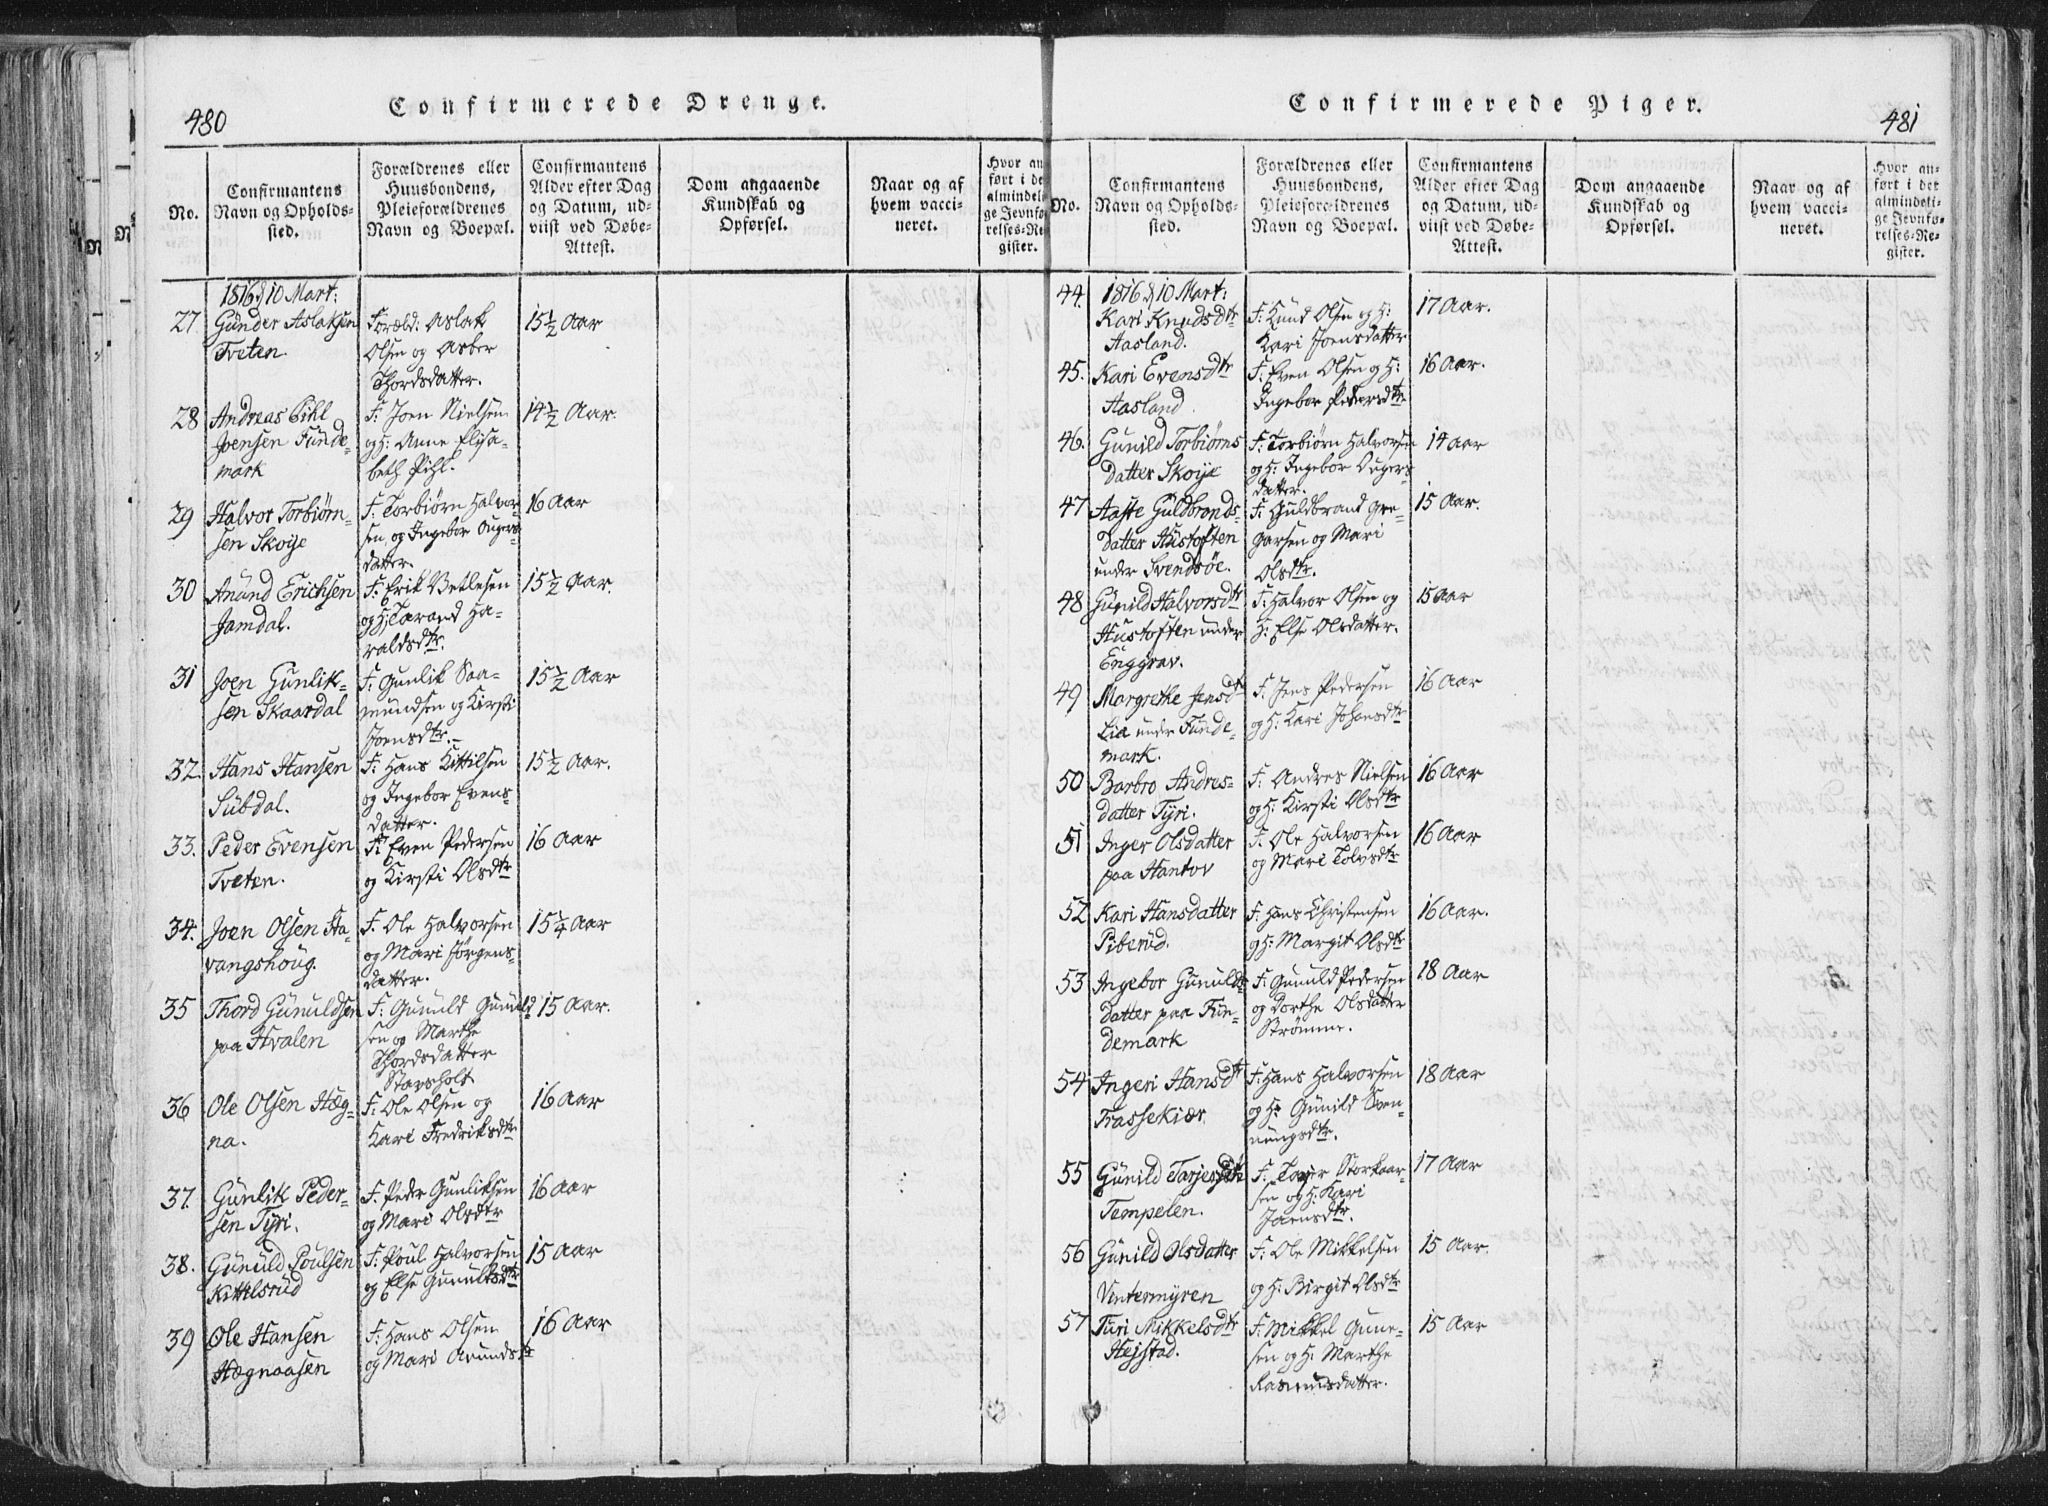 480
Confirmerede Drenge.
No.
Confirmantens
Navn og Opholds-
sted.
Forældrenes eller
Huusbondens,
Pleieforældrenes
Navn og Boepæl.
Confirmantens
Alder efter Dag
og Datum, ud-
viist ved Døbe-
Attest.
Dom angaaende
Kundskab og
Opførsel.
Naar og af
hvem vacci-
neret.
Hvor an-
ført i de
almindeli-
ge Jevnfø-
relses-Re-
gister.
1816 d 10 Mart:
27 Gunder Aslaksen
Tveten.
Foræld: Aslak
Olsen og Asber
Thordsdatter.
15½ Aar
28 Andreas Pihl
Joensen Funde-
mark
F: Joen Nielsen
og H: Anne Elisa-
beth Pihl.
14½ Aar.
29 Halvor Torbiørn-
sen Skoije
F: Torbiørn Halvor-
sen og Ingebor Ougers-
datter.
16 Aar
30 Anund Erichsen
Jamdal.
F: Erik Vetlesen
og H: Tarand Ha-
raldsdtr.
15½ Aar.
31 Joen Gunlik-
sen Skaardal
F. Gunlik Saa-
mundsen og Kirsti
Joensdtr.
15½ Aar
32. Hans Hansen
Subdal.
F: Hans Kittilsen
og Ingebor Evens-
datter.
15½ Aar.
33. Peder Evensen
Tveten.
F: Even Pedersen
og Kirsti Olsdtr
16 Aar
34. Joen Olsen Ha-
vangshoug.
F. Ole Halvorsen
og Mari Jørgens-
datter.
15¼ Aar
35 Thord Gunuldsen
paa Hvalen
F: Gunuld Gunuld
sen og Marthe
Thordsdatter
Stavsholt
15 Aar.
36 Ole Olsen Hæg-
na.
F: Ole Olsen og
Kari Fredriksdtr
16 Aar
37. Gunlik Peder-
sen Tyri.
F. Peder Gunliksen
og Mari Olsdtr
16 Aar
38. Gunuld Poulsen
Kittelsrud
F: Poul Halvorsen
og Else Gunuldsdtr
15 Aar
39 Ole Hansen
Hægnaasen
F: Hans Olsen
og Mari Anundsdtr
16 Aar
481
Confirmerede Piger.
No.
Confirmantens
Navn og Opholds-
sted.
Forældrenes eller
Huusbondens,
Pleieforældrenes
Navn og Boepæl.
Confirmantens
Alder efter Dag
og Datum, ud-
viist ved Døbe-
Attest.
Dom angaaende
Kundskab og
Opførsel.
Naar og af
hvem vacci-
neret.
Hvor an-
ført i det
almindeli-
ge Jevnfø-
relses-Re-
gister.
44. 1816 d 10 Mart:
Kari Knudsdtr
Aasland.
F: Knud Olsen og H:
Kari Joensdatter
17 Aar.
45. Kari Evensdtr
Aasland.
F: Even Olsen og H:
Ingebor Pedersdtr
16 Aar.
46. Gunild Torbiørns
datter Skoije
F: Torbiørn Halvorsen
og H: Ingebor Ougers
datter.
14 Aar
47 Aaste Guldbrands-
datter Hustoften
under Svendsøe.
F: Guldbrand Gre-
garsen og Mari
Olsdtr.
15 Aar.
48 Gunild Halvorsdtr
Hustoften under
Enggrav.
F: Halvor Olsen og
H: Else Olsdatter.
15 Aar
49 Margrethe Jensdtr
Lia under Funde-
mark.
F: Jens Pedersen
og H: Kari Johansdtr
16 Aar
50 Barbro Andres-
datter Tyri.
F: Andres Nielsen
og H: Kirsti Olsdtr
16 Aar
51 Inger Olsdatter
paa Hantov
F. Ole Halvorsen
og Mari Tolvsdtr
16 Aar
52 Kari Hansdatter
Piberud.
F: Hans Christensen
og H: Margit Olsdtr
16 Aar.
53 Ingebor Gunulds
datter paa Fun-
demark
F: Gunuld Pedersen
og Dorthe Olsdatter
Strømme.
18 Aar
54 Ingeri Hansdtr
Trassekiær
F: Hans Halvorsen
og H: Gunild Sven-
nungsdtr.
18 Aar
55 Gunild Tarjersdtr
Tempelen.
F: Tarjer Storkaar-
sen og H: Kari
Joensdtr.
17 Aar
56 Gunild Olsdatter
Vintermyren
F: Ole Mikkelsen
og H: Birgit Olsdtr
15 Aar.
57 Turi Mikkelsdtr
Hejstad.
F: Mikkel Gune-
sen og H: Marthe
Rasmusdatter.
15 Aar